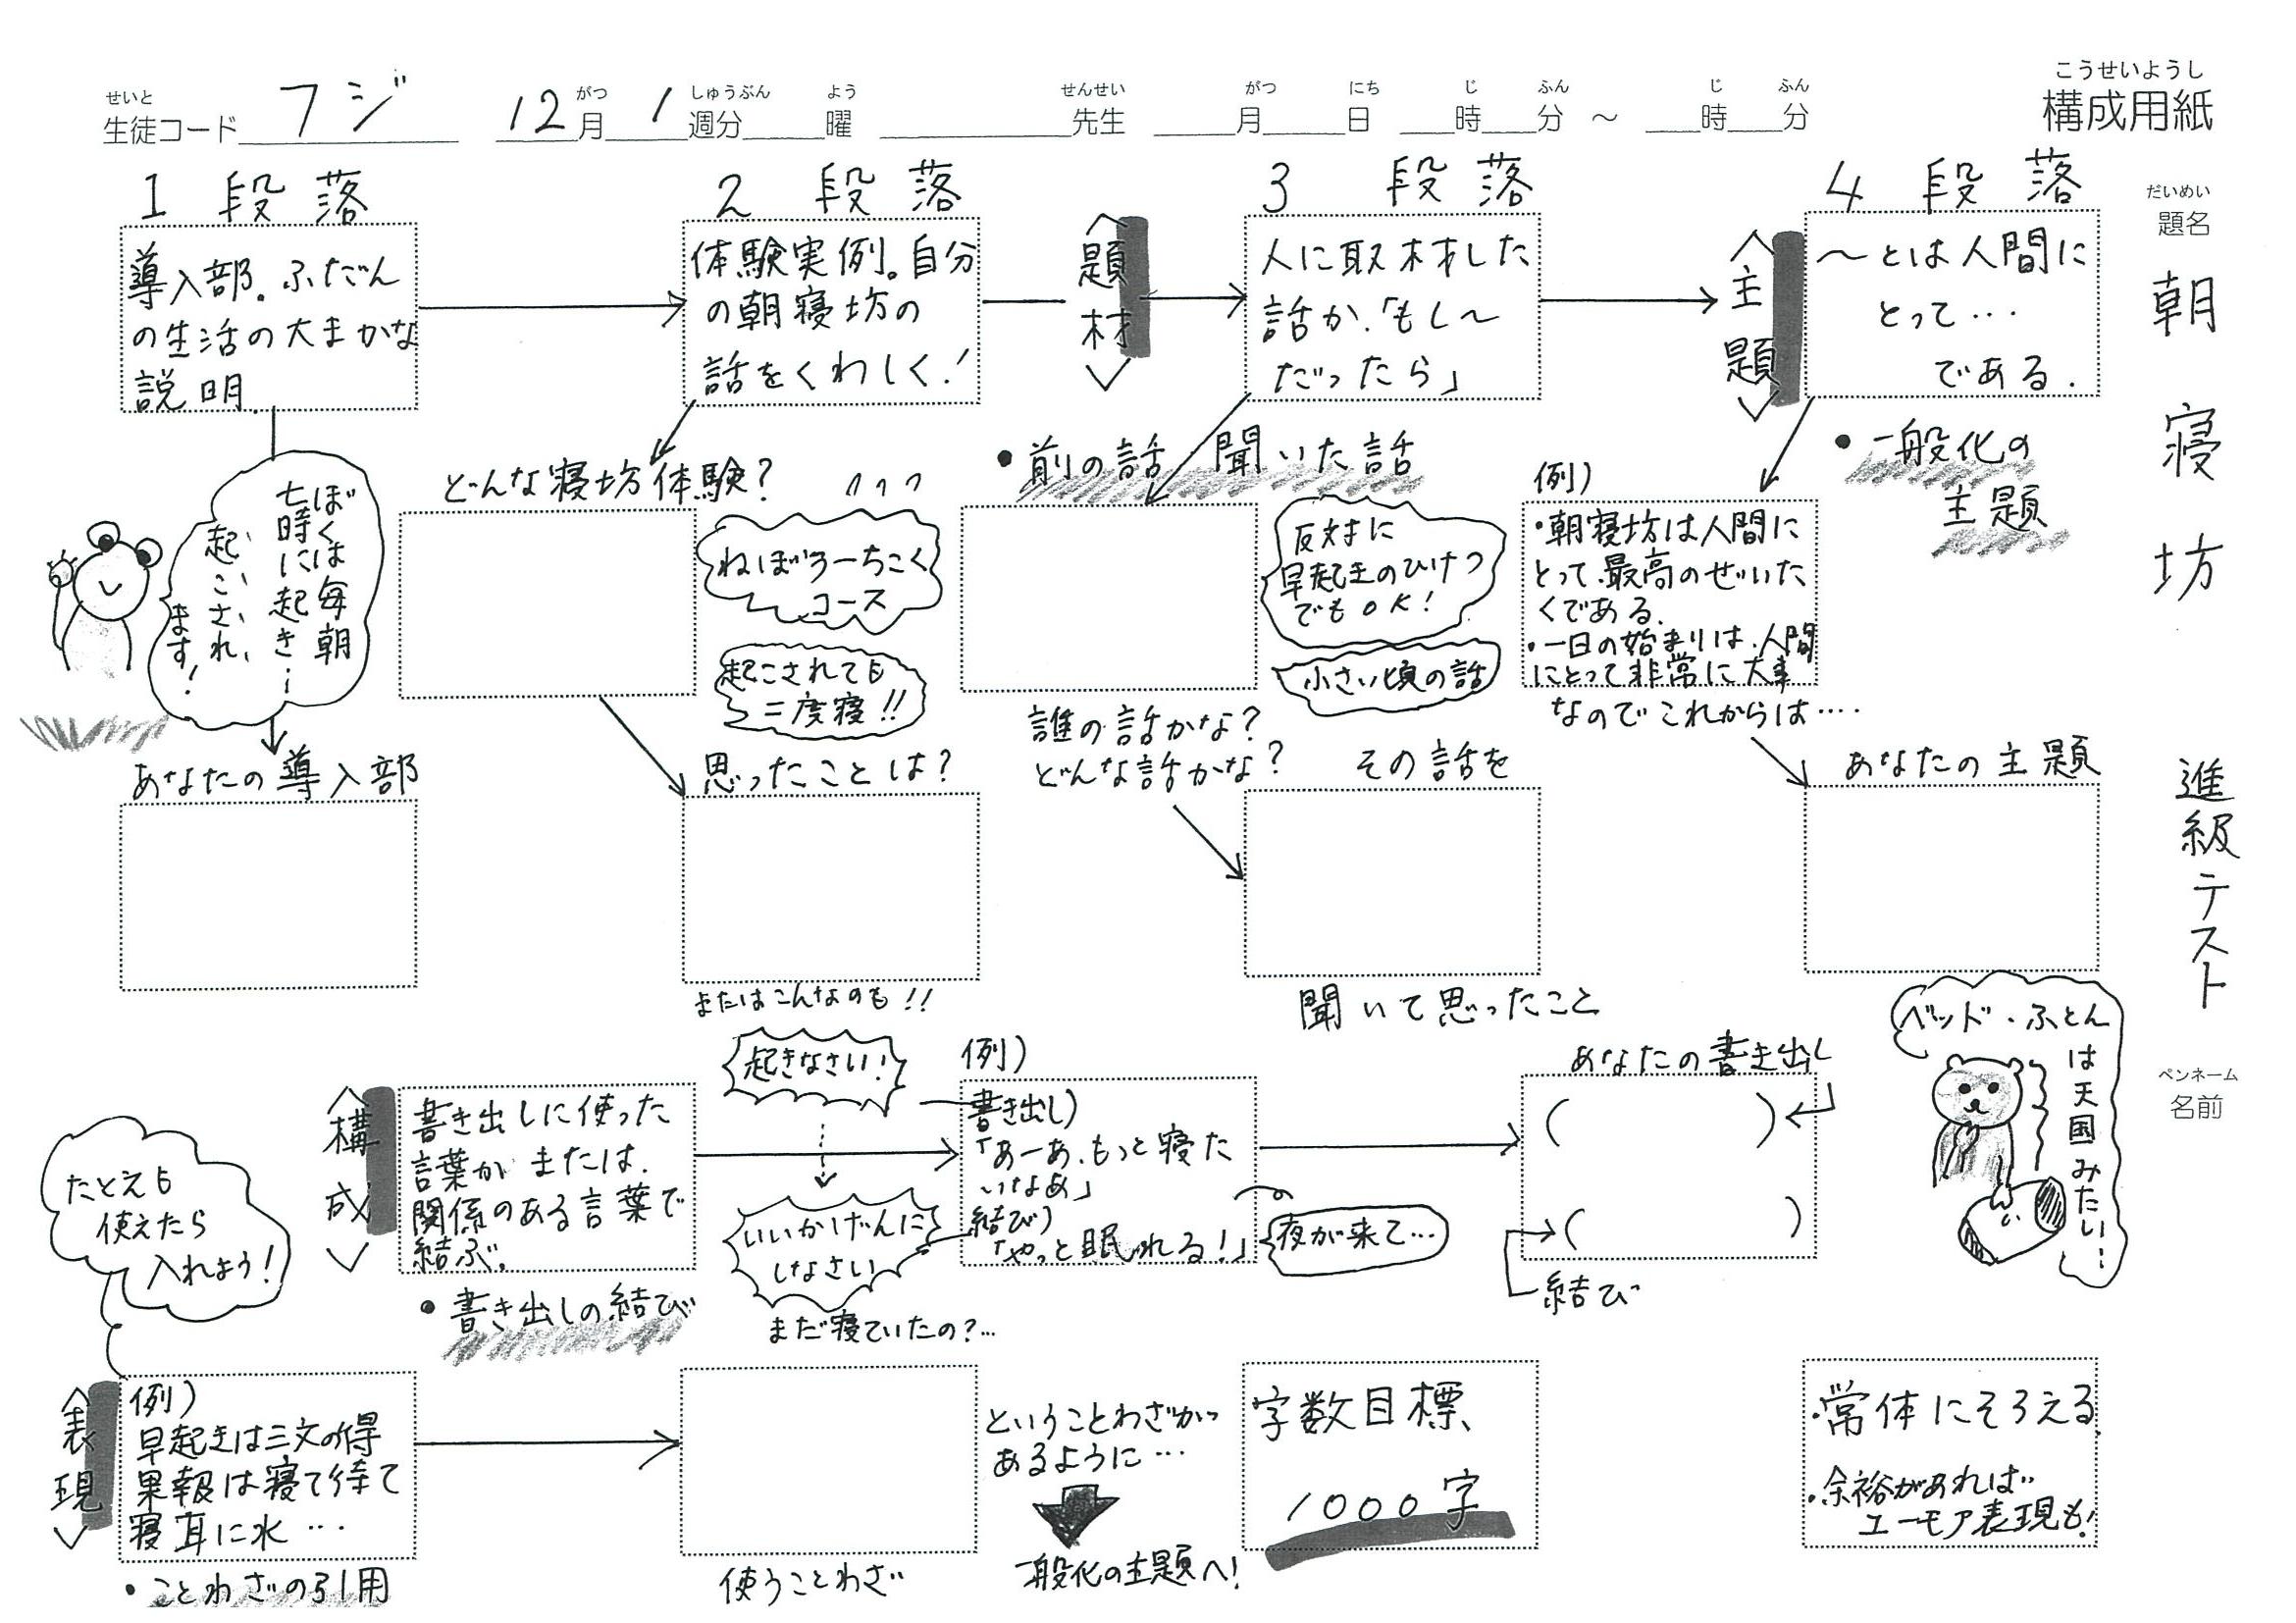 こうせいようし
構成用紙
せいと
生徒コード フジ
12月 1週分 曜
がつ しゅうぶん よう
せんせい
先生
がつ にち じ ふん じ ふん
月 日 時 分 ～ 時 分
だいめい
題名
朝寝坊
進級テスト
ペンネーム
名前
1 段落
導入部。ふだん
の生活の大まかな
説明.
2 段落
体験実例。自分
の朝寝坊の
話をくわしく!
<題材>
3 段落
人に取材した
話か、「もし〜
だったら」
<主題>
4 段落
〜とは人間に
とって…
である.
ぼくは毎朝
七時に起き…
起こされ、
ます!
あなたの導入部
どんな寝坊体験?
ねぼうーちこく
コース
起こされても
二度寝!!
思ったことは?
またはこんなのも!!
・前の話 聞いた話
反対に
早起きのひけつ
でもOK!
小さい頃の話
誰の話かな?
どんな話かな?
その話を
聞いて思ったこと
・一般化の
主題
例)
・朝寝坊は人間に
とって、最高のぜいた
くである.
・一日の始まりは、人間
にとって非常に大事
なのでこれからは….
あなたの主題
ベッド・ふとん
は天国みたい…
<構成>
書き出しに使った
言葉か または、
関係のある言葉で
結ぶ.
・書き出しの結び
起きなさい!
いいかげんに
しなさい
まだ寝ていたの?…
例)
書き出し)
「あーあ、もっと寝た
いなあ」
結び)
「やっと眠れる!」
夜が来て…
あなたの書き出し
( )
( )
結び
たとえも
使えたら
入れよう!
<表現>
例)
早起きは三文の得
果報は寝て待て
寝耳に水…
・ことわざの引用
使うことわざ
ということわざが
あるように…
一般化の主題へ!
字数目標、
1000字
・常体にそろえる.
・余裕があれば
ユーモア表現も!